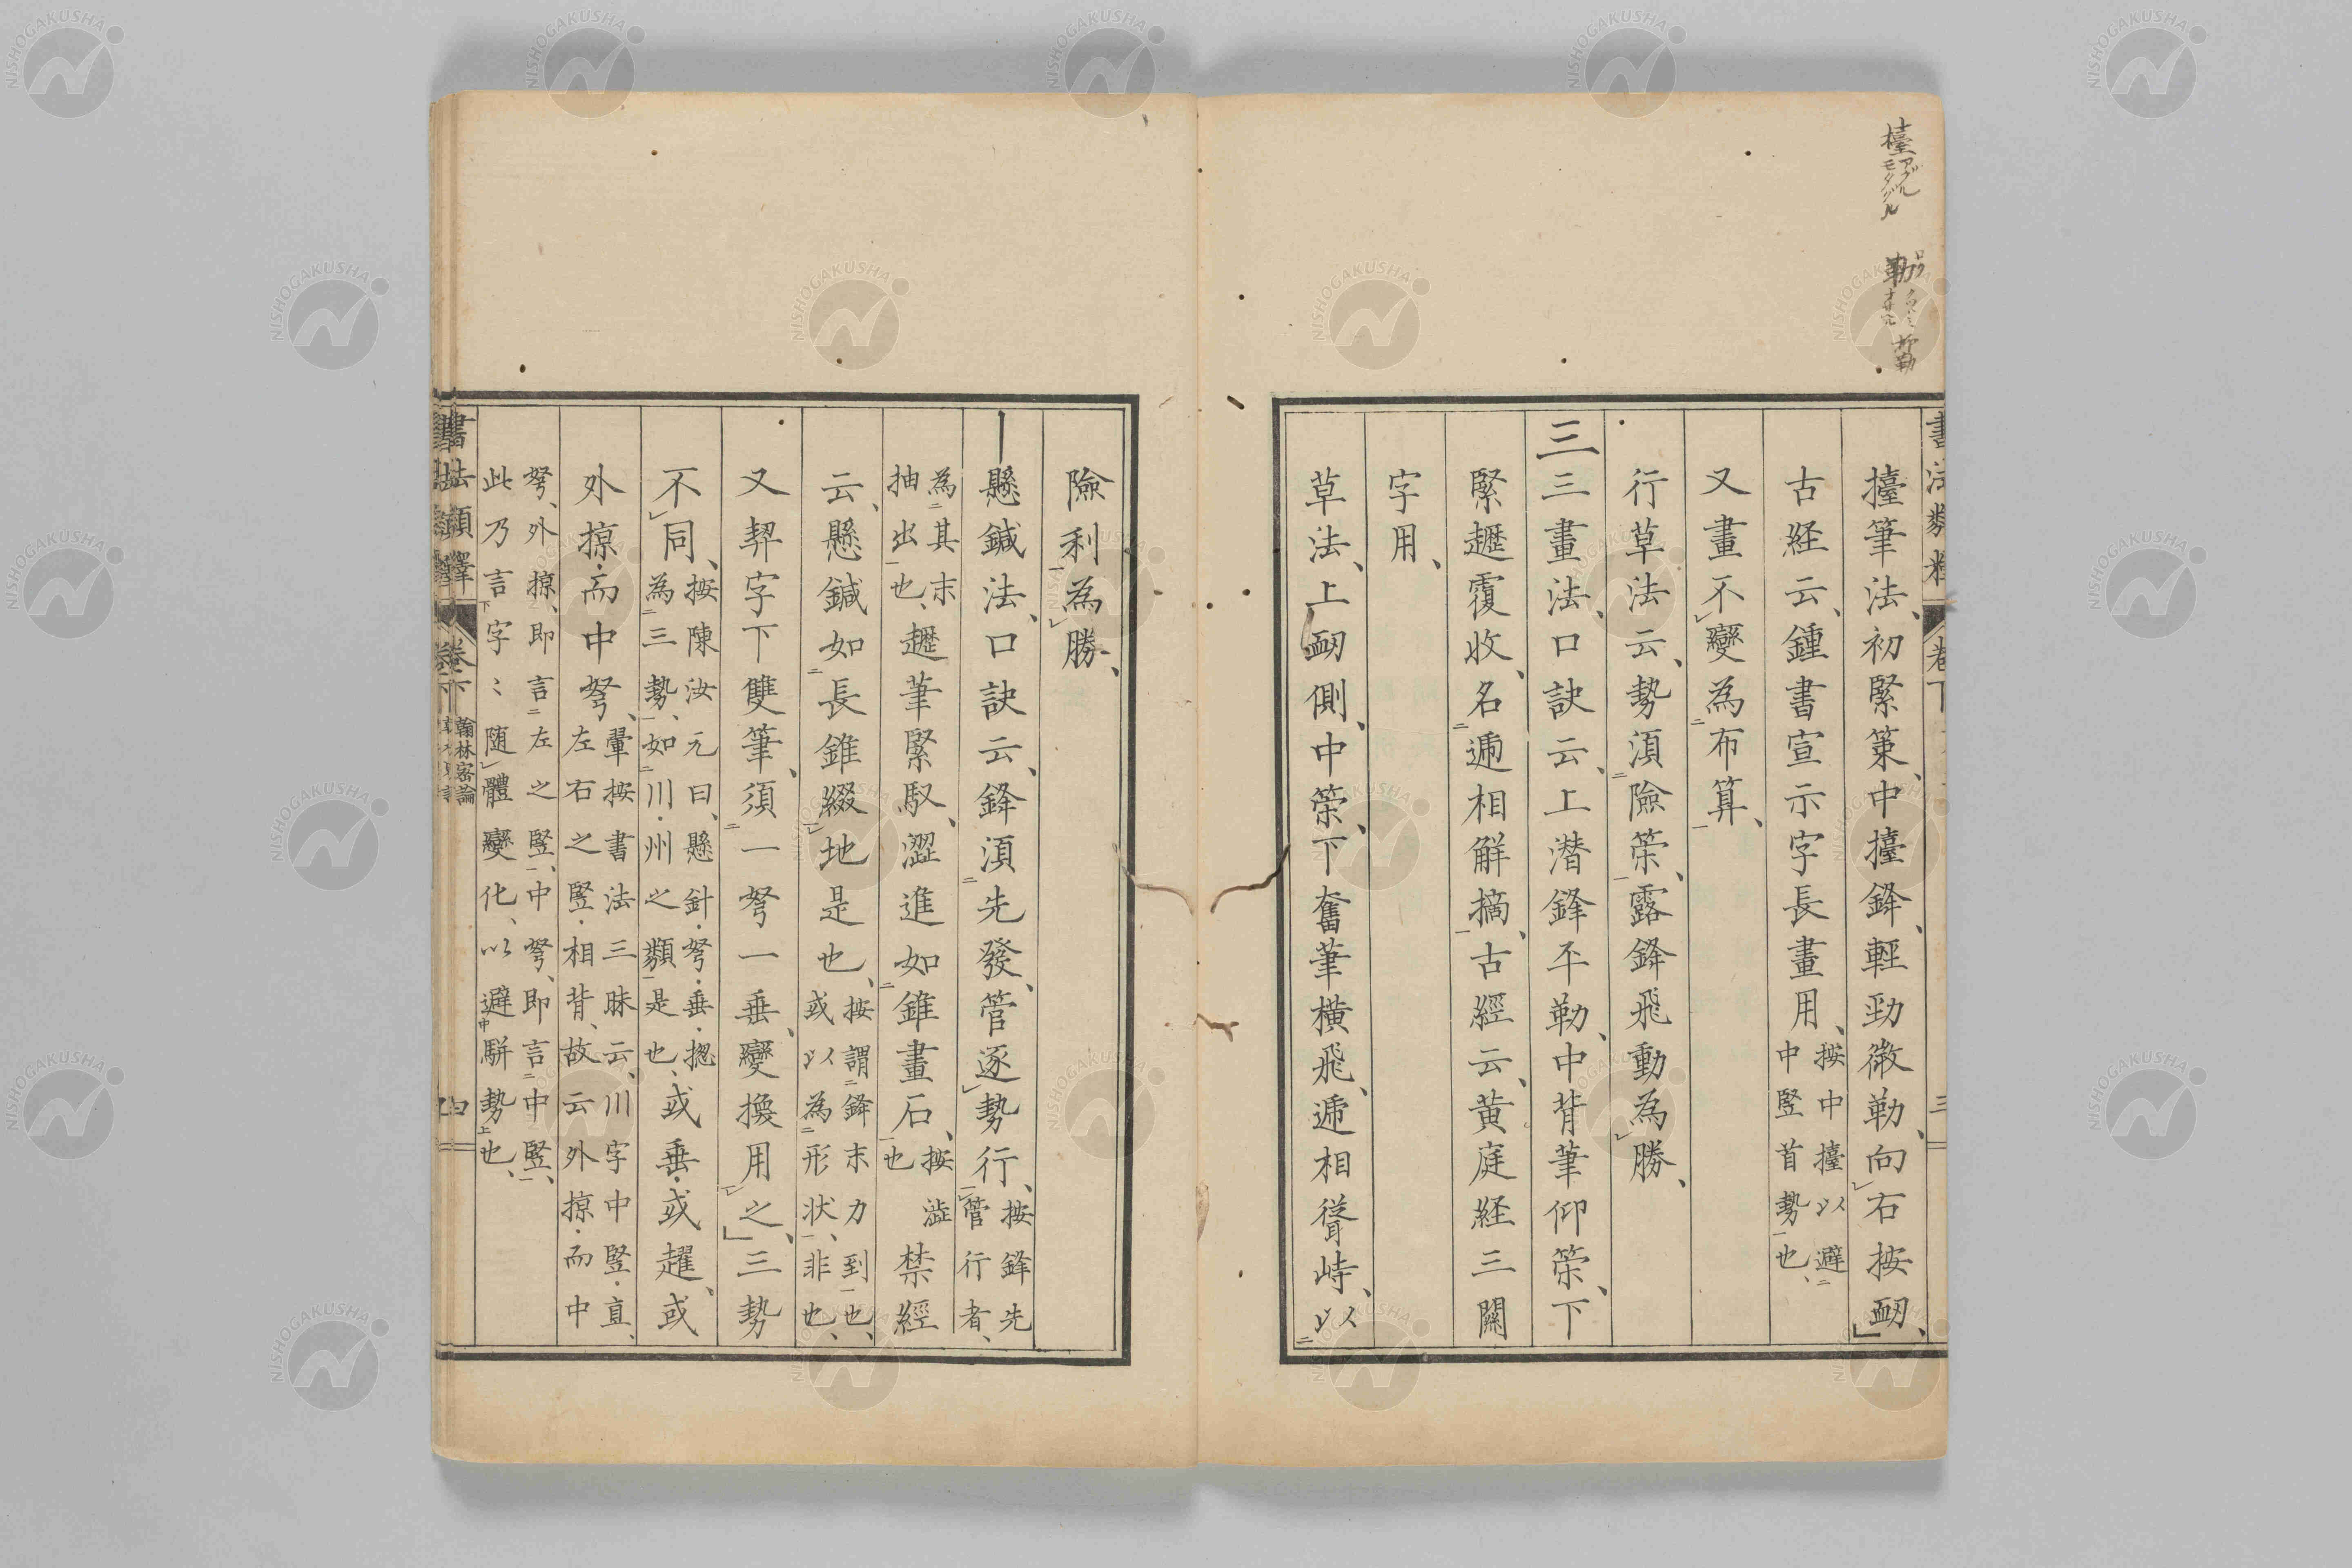 擡筆法、初緊策、中擡鋒、輕勁微勒、向右按衂、
古経云、鍾書宣示字長畫用、按中擡以避中竪首勢也、
又畫不變為布算、
行草法云、勢湏險策、露鋒飛動為勝、
三三畫法、口訣云、上潜鋒平勒、中背筆仰策、下
緊趯覆收、名遞相解摘、古經云、黄庭経三關
字用、
草法、上衂側、中策、下奮筆橫飛、遞相聳峙、以
險利為勝、
丨懸鍼法、口訣云、鋒湏先發、管逐勢行、按鋒先管行者、
為其末抽出也、趯筆緊馭、澀進如錐畫石、按澁也禁經
云、懸鍼如長錐綴地是也、按謂鋒末力到也、或以為形状、非也、
又契字下雙筆、須一弩一垂、變換用之、三勢
不同、按陳汝元曰、懸針・弩・垂・揔為三勢、如川・州之類是也、或垂・或趯、或
外掠・而中弩、翬按書法三昧云、川字中竪・直、左右之竪・相背、故云外掠・而中
弩、外掠、即言左之竪、中弩、即言中竪、此乃言字〻随體變化、以避駢勢也、
書法類釋
卷下
翰林密論
NISHOGAKUSHA